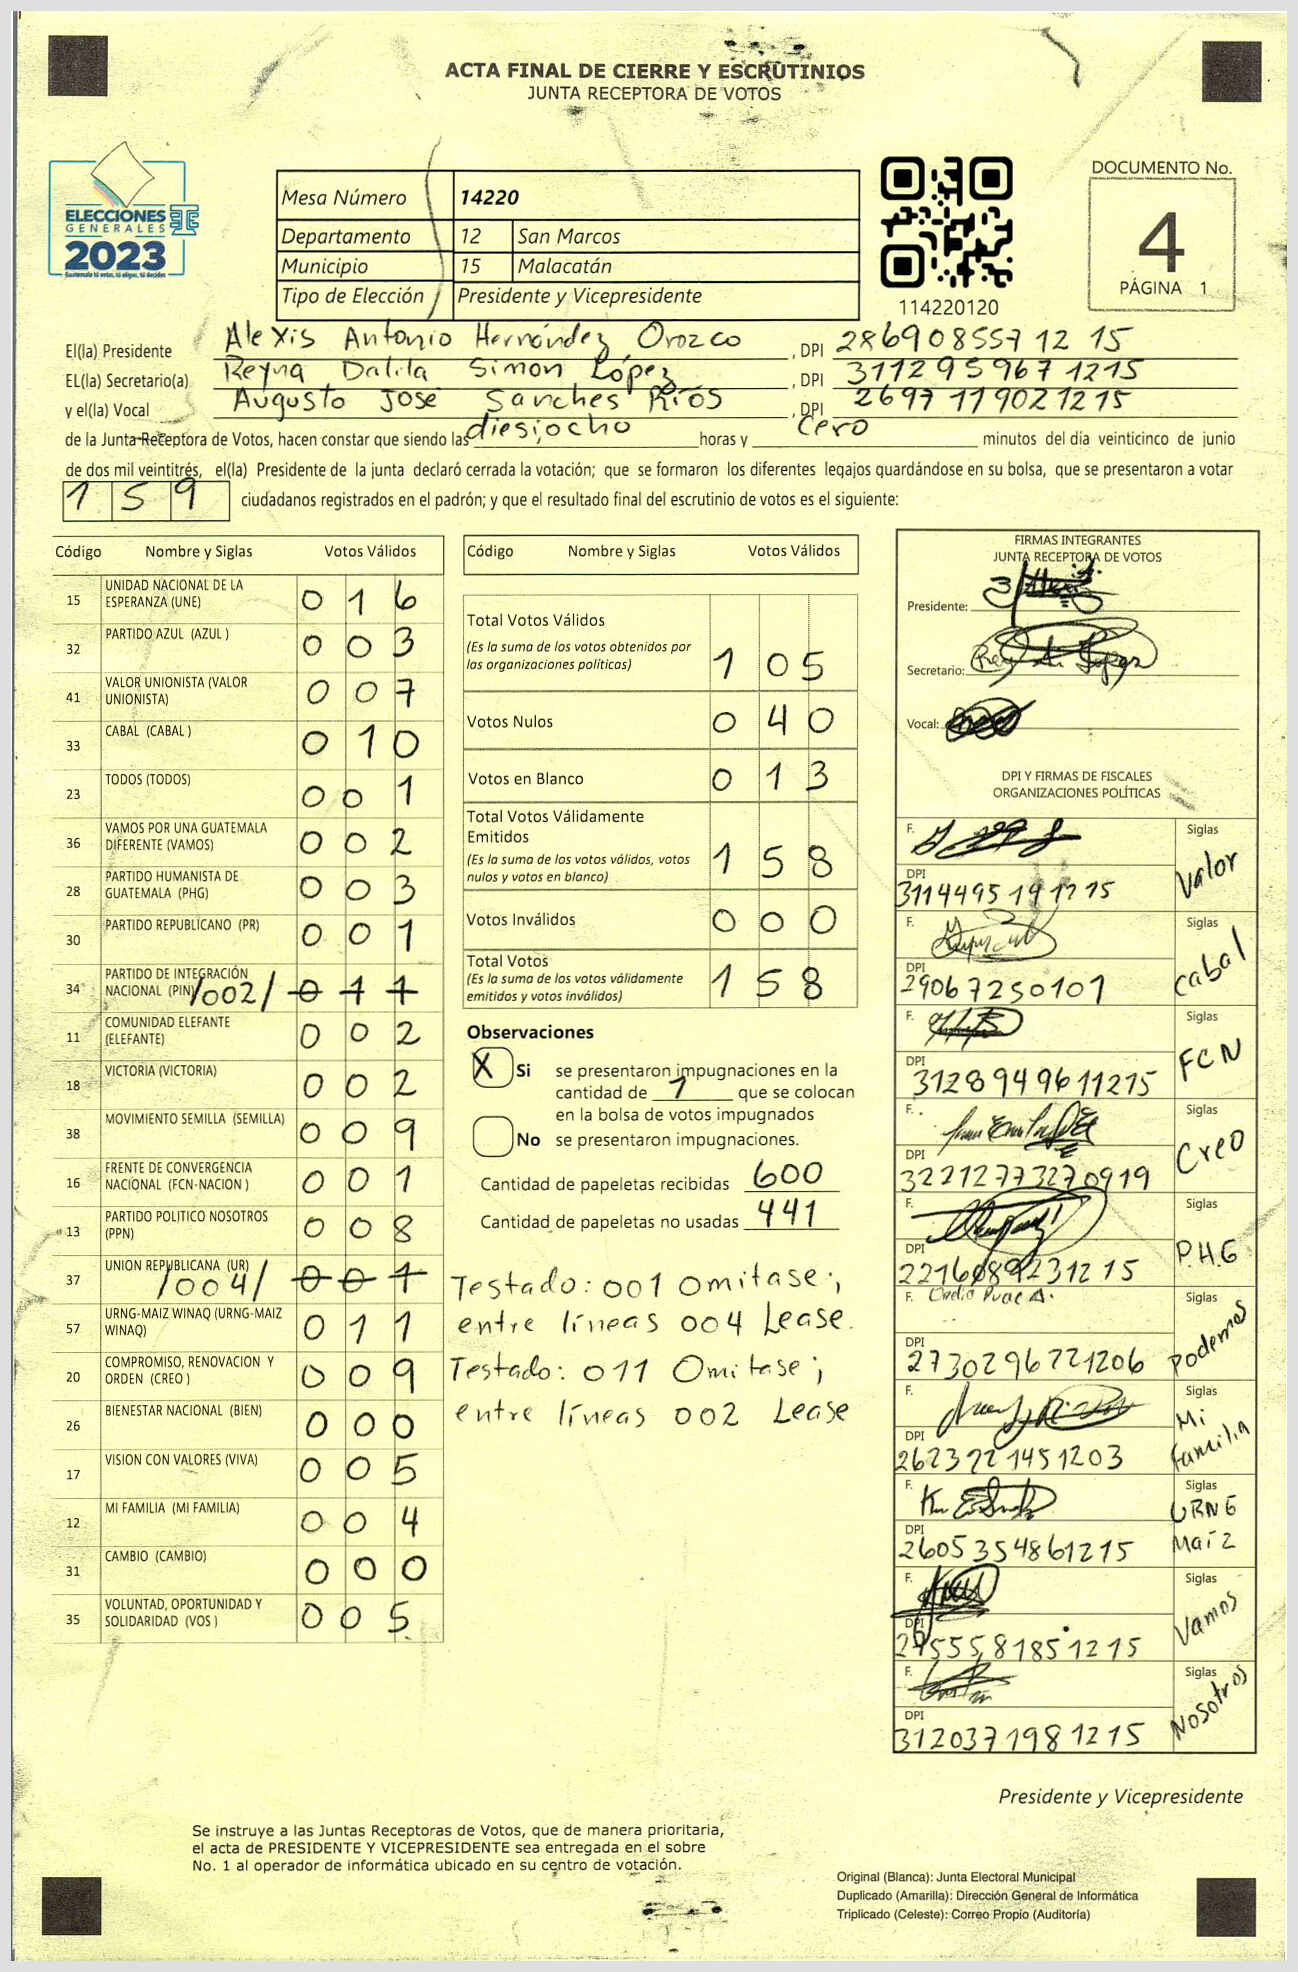 ACTA FINAL DE CIERRE Y ESCRUTINIOS
JUNTA RECEPTORA DE VOTOS
ELECCIONES
GENERALES
2023
Guatemala tú votas, tú eliges, tú decides
Mesa Número 14220
Departamento 12 San Marcos
Municipio 15 Malacatán
Tipo de Elección Presidente y Vicepresidente
114220120
DOCUMENTO No.
4
PÁGINA 1
El(la) Presidente Alexis Antonio Hernández Orozco , DPI 286908557 12 15
EL(la) Secretario(a) Reyna Dalila Simon López , DPI 311295967 1215
y el(la) Vocal Augusto José Sanches Ríos , DPI 2697 119021215
de la Junta Receptora de Votos, hacen constar que siendo las diesiocho horas y cero minutos del día veinticinco de junio
de dos mil veintitrés, el(la) Presidente de la junta declaró cerrada la votación; que se formaron los diferentes legajos guardándose en su bolsa, que se presentaron a votar
159 ciudadanos registrados en el padrón; y que el resultado final del escrutinio de votos es el siguiente:
Código Nombre y Siglas Votos Válidos
15 UNIDAD NACIONAL DE LA ESPERANZA (UNE) 016
32 PARTIDO AZUL (AZUL ) 003
41 VALOR UNIONISTA (VALOR UNIONISTA) 007
33 CABAL (CABAL ) 010
23 TODOS (TODOS) 001
36 VAMOS POR UNA GUATEMALA DIFERENTE (VAMOS) 002
28 PARTIDO HUMANISTA DE GUATEMALA (PHG) 003
30 PARTIDO REPUBLICANO (PR) 001
34 PARTIDO DE INTEGRACIÓN NACIONAL (PIN) /002/ 011
11 COMUNIDAD ELEFANTE (ELEFANTE) 002
18 VICTORIA (VICTORIA) 002
38 MOVIMIENTO SEMILLA (SEMILLA) 009
16 FRENTE DE CONVERGENCIA NACIONAL (FCN-NACION ) 001
13 PARTIDO POLITICO NOSOTROS (PPN) 008
37 UNION REPUBLICANA (UR) /004/ 001
57 URNG-MAIZ WINAQ (URNG-MAIZ WINAQ) 011
20 COMPROMISO, RENOVACION Y ORDEN (CREO ) 009
26 BIENESTAR NACIONAL (BIEN) 000
17 VISION CON VALORES (VIVA) 005
12 MI FAMILIA (MI FAMILIA) 004
31 CAMBIO (CAMBIO) 000
35 VOLUNTAD, OPORTUNIDAD Y SOLIDARIDAD (VOS ) 005
Código Nombre y Siglas Votos Válidos
Total Votos Válidos
(Es la suma de los votos obtenidos por
las organizaciones políticas) 105
Votos Nulos 040
Votos en Blanco 013
Total Votos Válidamente
Emitidos
(Es la suma de los votos válidos, votos
nulos y votos en blanco) 158
Votos Inválidos 000
Total Votos
(Es la suma de los votos válidamente
emitidos y votos inválidos) 158
Observaciones
X Si se presentaron impugnaciones en la
cantidad de 1 que se colocan
en la bolsa de votos impugnados
No se presentaron impugnaciones.
Cantidad de papeletas recibidas 600
Cantidad de papeletas no usadas 441
Testado: 001 Omitase;
entre líneas 004 Lease.
Testado: 011 Omitase;
entre líneas 002 Lease
FIRMAS INTEGRANTES
JUNTA RECEPTORA DE VOTOS
Presidente:
Secretario:
Vocal:
DPI Y FIRMAS DE FISCALES
ORGANIZACIONES POLÍTICAS
F. Siglas
DPI 3114495191215 Valor
F. Siglas
DPI 29067250101 Cabal
F. Siglas
DPI 3128949611215 FCN
F. Siglas
DPI 32212773270919 Creo
F. Siglas
DPI P.H.G
F. Siglas
DPI 2730296221206 Podemos
F. Siglas
DPI 2623221451203 Mi familia
F. Siglas
DPI 2605354861215 URNG Maíz
F. Siglas
DPI Vamos
F. Siglas
DPI 3120371981215 Nosotros
Presidente y Vicepresidente
Se instruye a las Juntas Receptoras de Votos, que de manera prioritaria,
el acta de PRESIDENTE Y VICEPRESIDENTE sea entregada en el sobre
No. 1 al operador de informática ubicado en su centro de votación.
Original (Blanca): Junta Electoral Municipal
Duplicado (Amarilla): Dirección General de Informática
Triplicado (Celeste): Correo Propio (Auditoría)